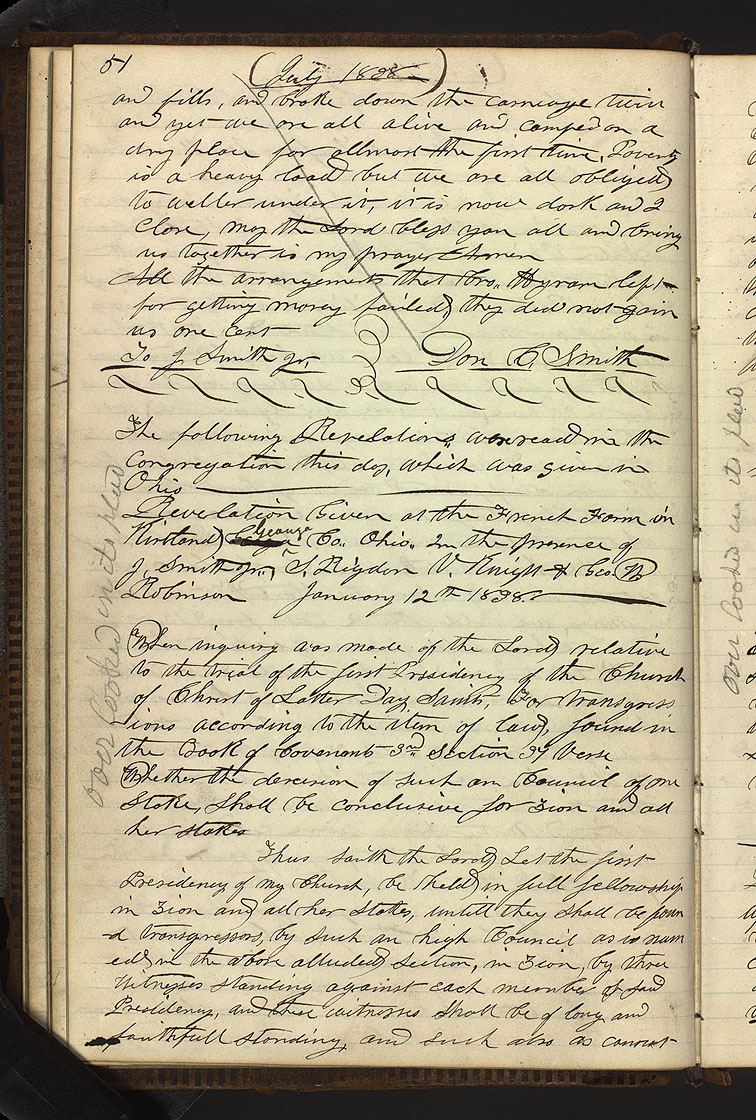 51
(July 1838)
and fills, and broke down the carriage twice
and yet we are all alive and camped on a
dry place for allmost the first time, Poverty
is a heavy load but we are all obliged
to weller under it, it is now dark and I
close, may the Lord bless you all and bring
us together is my prayer Amen
All the arrangements that bro. Hyram left
for getting money failed, they did not gain
us one cent
To J. Smith jr. Don C. Smith
The following Revelations were read in the
congregation this day, which was given in
Ohio
Revelation Given at the French Farm in
Kirtland Geauga Co. Ohio. In the presence of
J. Smith jr., S. Rigdon V. Knight & Geo. W.
Robinson January 12th 1838.
When inquiry was made of the Lord relative
to the trial of the first Presidency of the Church
of Christ of Latter Day Saints, For transgress
ions according to the item of law, found in
the Book of Covenants 3rd Section 37 Verse
Whether the decision of such an Council of one
Stake, Shall be conclusive for Zion and all
her stakes
Thus saith the Lord, Let the first
Presidency of my Church, be held in full fellowship
in Zion and all her Stakes, untill they shall be foun
d transgressors, by such an high Council as is nam
ed, in the above alluded section, in Zion, by three
Witnesses standing against each member of said
Presidency, and these witnesses shall be of long and
faithfull standing, and such also as cannot
over looked in its place
over looked in its place